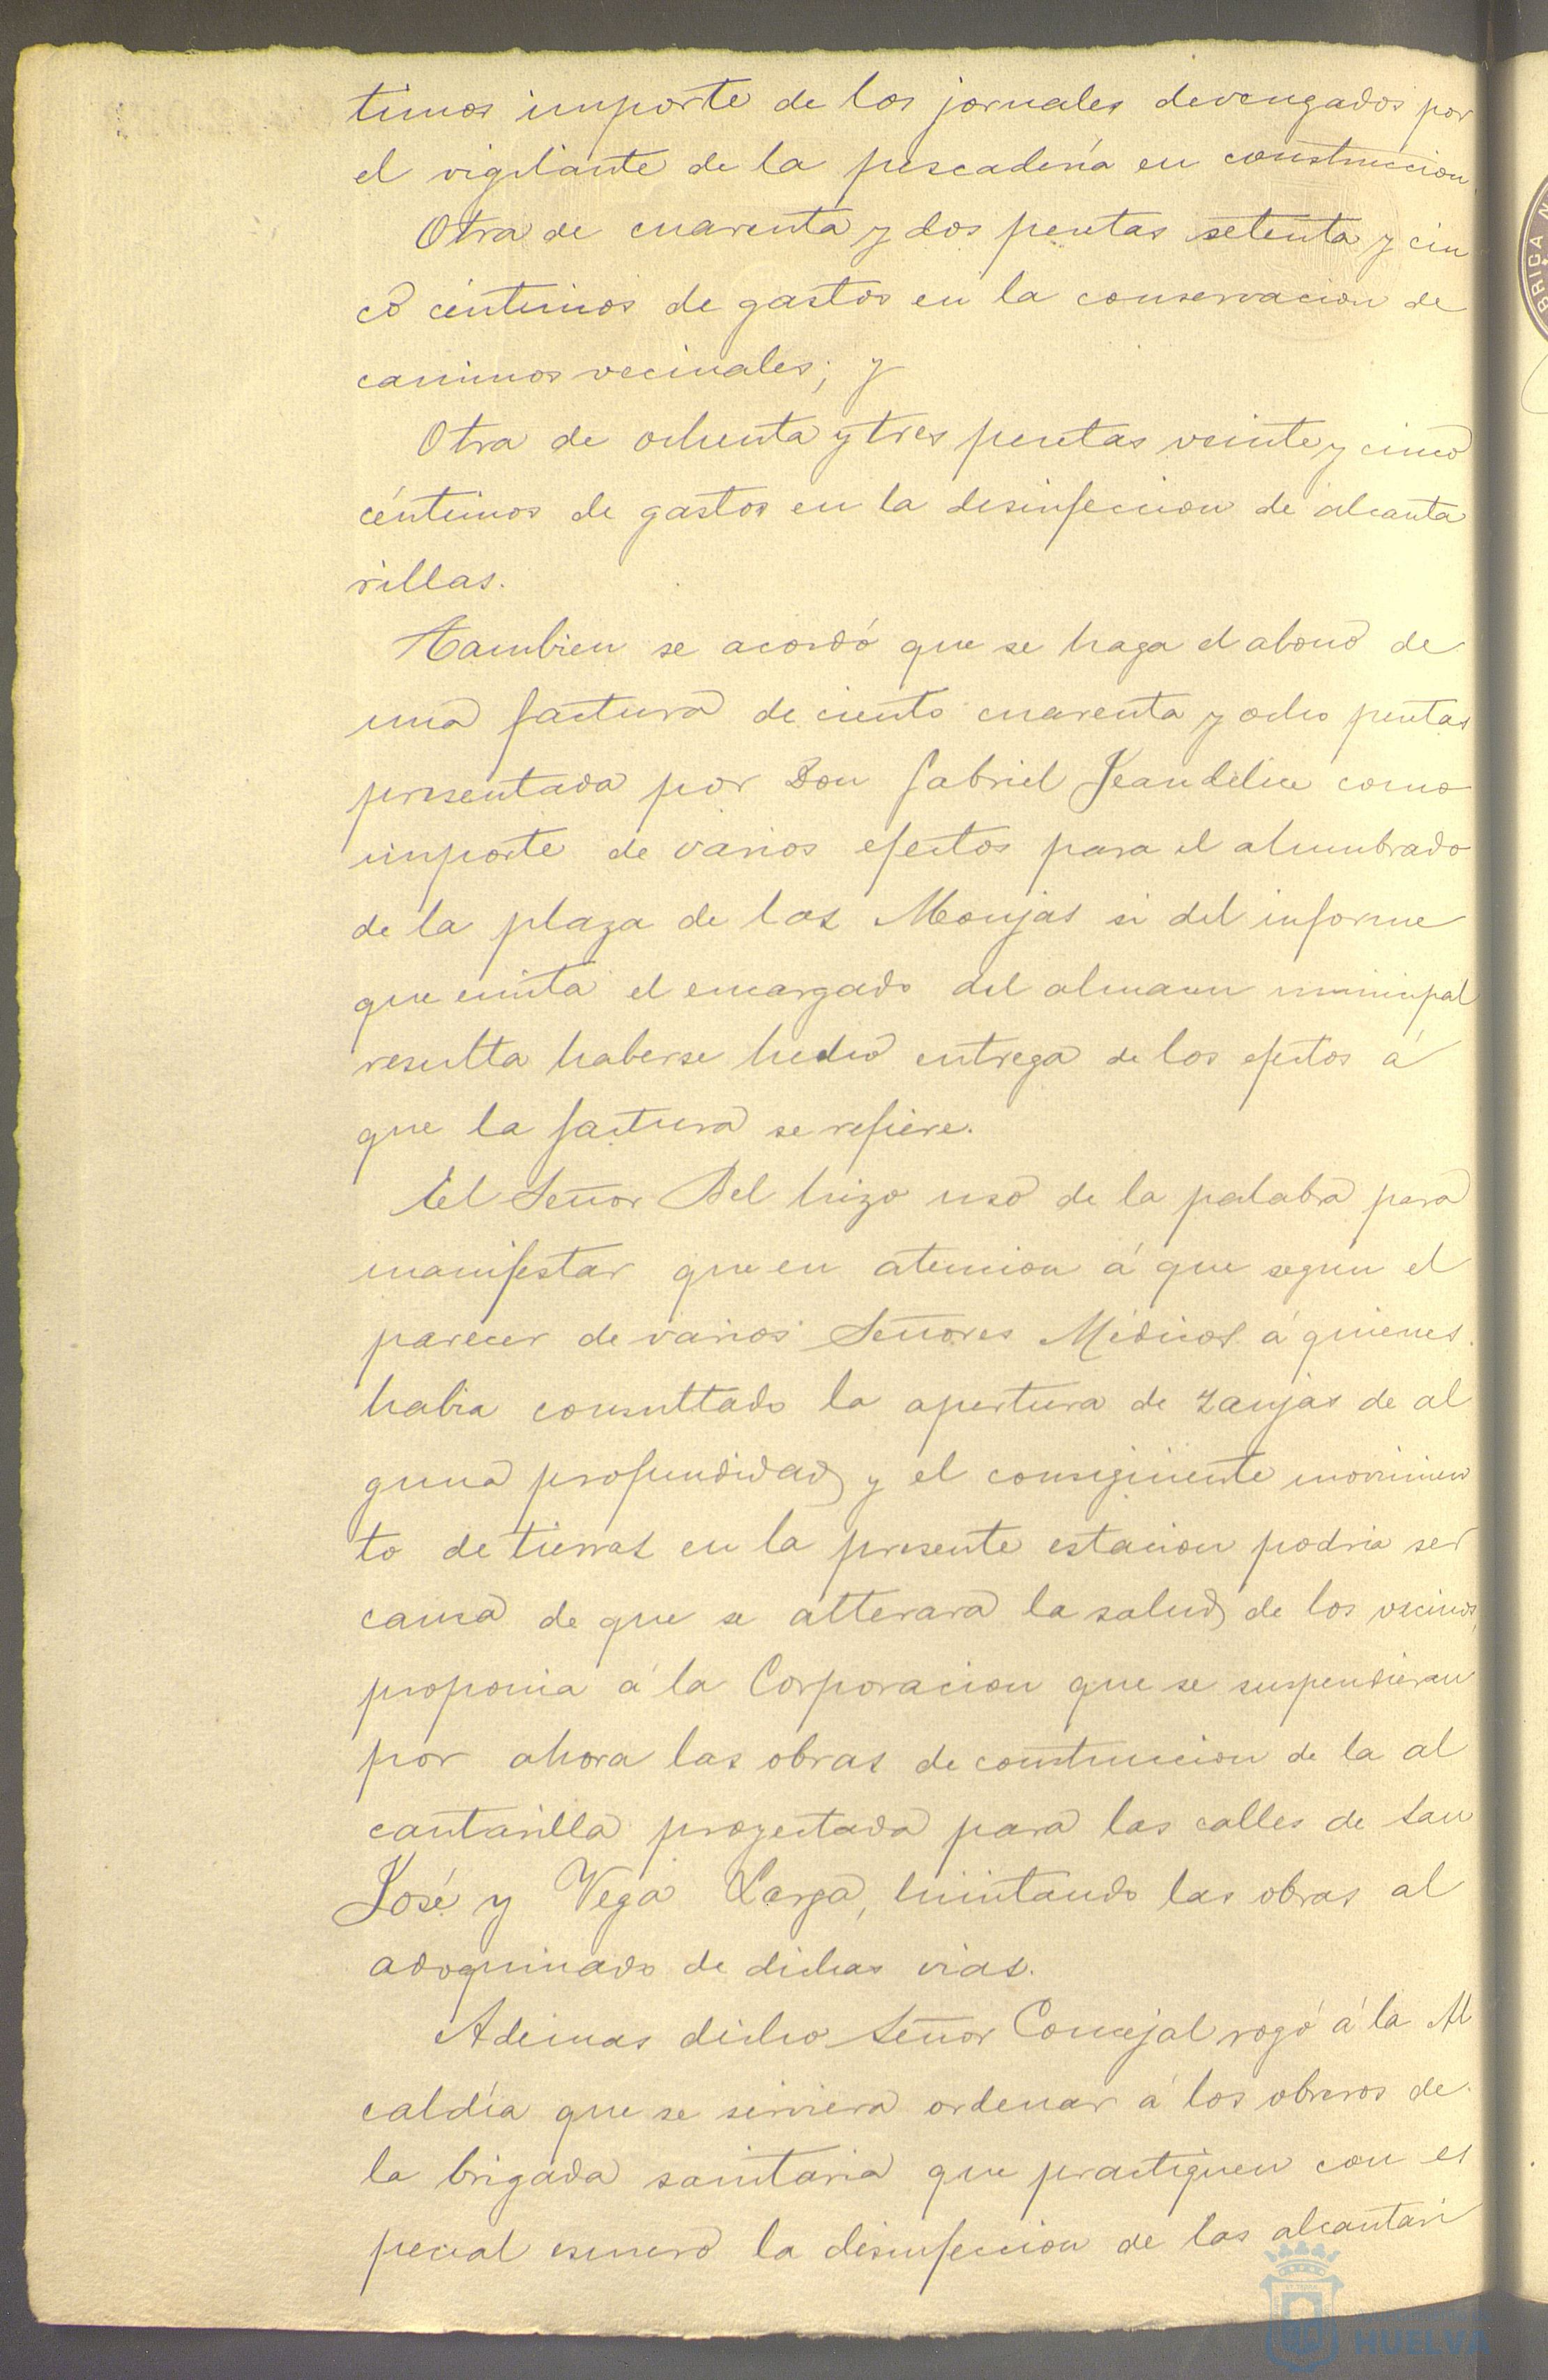 timos importe de los jornales devengados por
el vigilante de la pescadería en construccion.
Otra de cuarenta y dos pesetas setenta y cin
co centimos de gastos en la conservacion de
caminos vecinales; y
Otra de ochenta y tres pesetas veinte y cinco
céntimos de gastos en la desinfeccion de alcanta
rillas.
Tambien se acordó que se haga el abono de
una factura de ciento cuarenta y ocho pesetas
presentada por Don Gabriel como
importe de varios efectos para el alumbrado
de la plaza de las Monjas si del informe
que emita el encargado del almacen municipal
resulta haberse hecho entrega de los efectos á
que la factura se refiere.
El Señor Bel hizo uso de la palabra para
manifestar que en atencion á que segun el
parecer de varios Señores Médicos á quienes
habia consultado la apertura de zanjas de al
guna profundidad y el consiguiente movimien
to de tierras en la presente estacion podria ser
causa de que se alterara la salud de los vecinos,
proponia á la Corporacion que se suspendieran
por ahora las obras de construccion de la al
cantarilla proyectada para las calles de San
José y Vega Larga, limitando las obras al
adoquinado de dichas vias.
Ademas dicho Señor Concejal rogó á la Al
caldía que se sirviera ordenar á los obreros de
la brigada sanitaria que practiquen con es
pecial esmero la desinfeccion de las alcantari
HUELVA